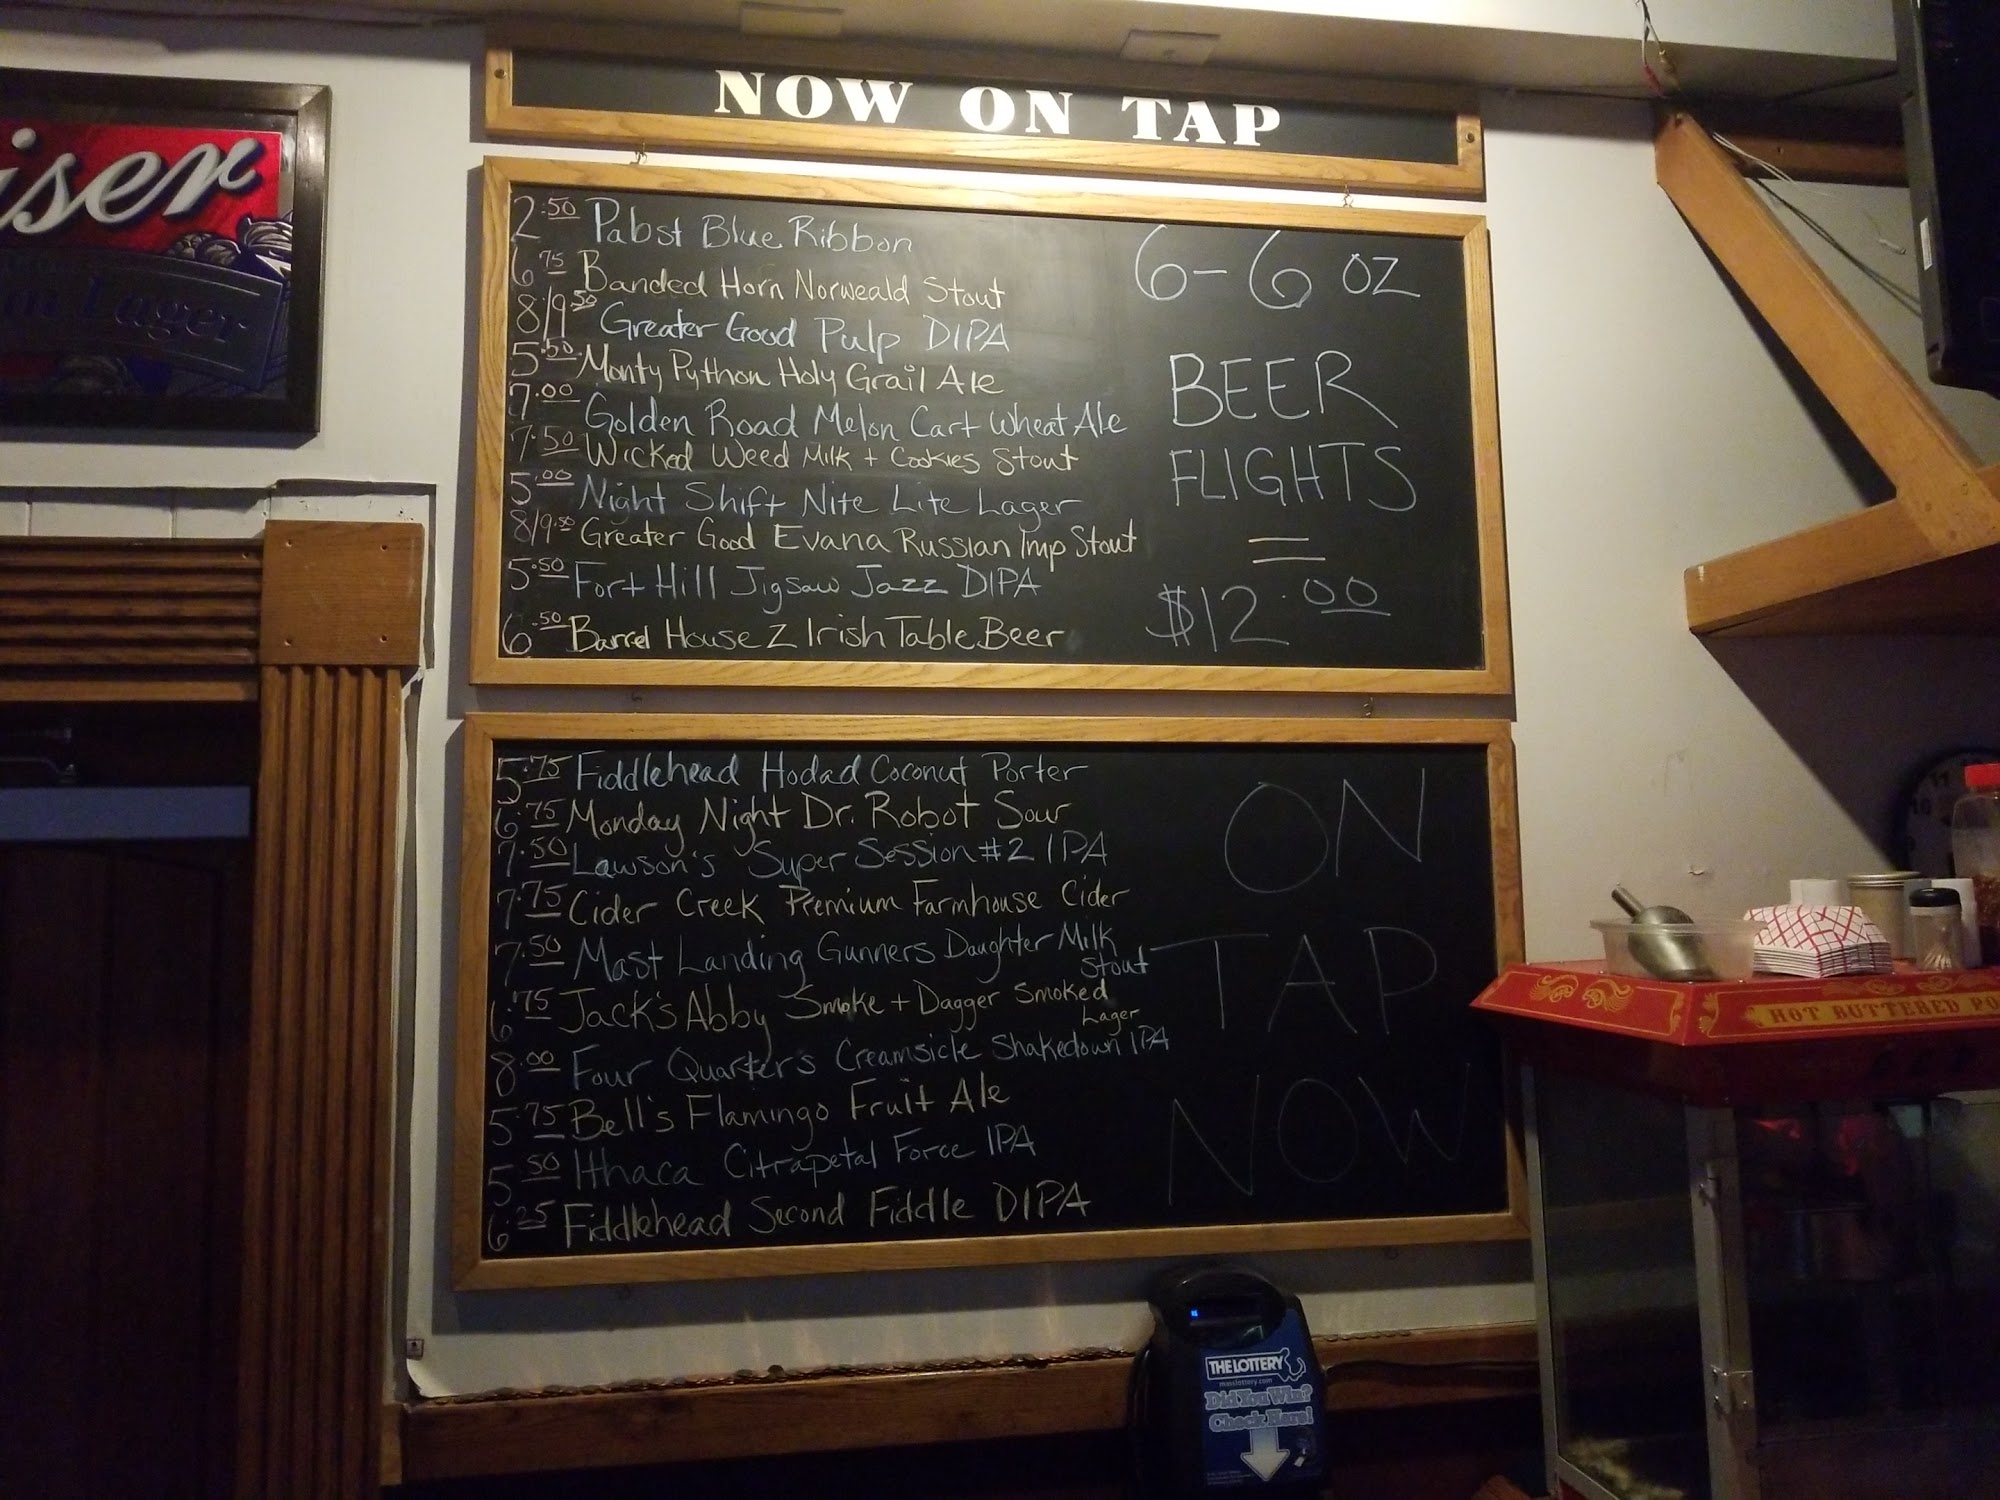 NOW ON TAP
iser
Lager
2.50 Pabst Blue Ribbon
6.75 Banded Horn Norweald Stout
8/9.50 Greater Good Pulp DIPA
5.50 Monty Python Holy Grail Ale
7.00 Golden Road Melon Cart Wheat Ale
7.50 Wicked Weed Milk + Cookies Stout
5.00 Night Shift Nite Lite Lager
8/9.50 Greater Good Evana Russian Imp Stout
5.50 Fort Hill Jigsaw Jazz DIPA
6.50 Barrel House Z Irish Table Beer
6-6 oz
BEER
FLIGHTS
=
$12.00
5.75 Fiddlehead Hodad Coconut Porter
6.75 Monday Night Dr. Robot Sour
7.50 Lawson's Super Session #2 IPA
7.75 Cider Creek Premium Farmhouse Cider
7.50 Mast Landing Gunners Daughter Milk
Stout
6.75 Jack's Abby Smoke + Dagger Smoked
Lager
8.00 Four Quarters Creamsicle Shakedown IPA
5.75 Bell's Flamingo Fruit Ale
5.50 Ithaca Citrapetal Force IPA
6.25 Fiddlehead Second Fiddle DIPA
ON
TAP
NOW
HOT BUTTERED PO
THE LOTTERY
masslottery.com
Did You Win?
Check Here!